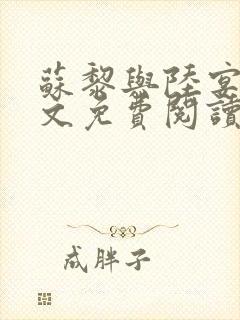 蘇黎與陸宴
文免費閱讀
成胖子